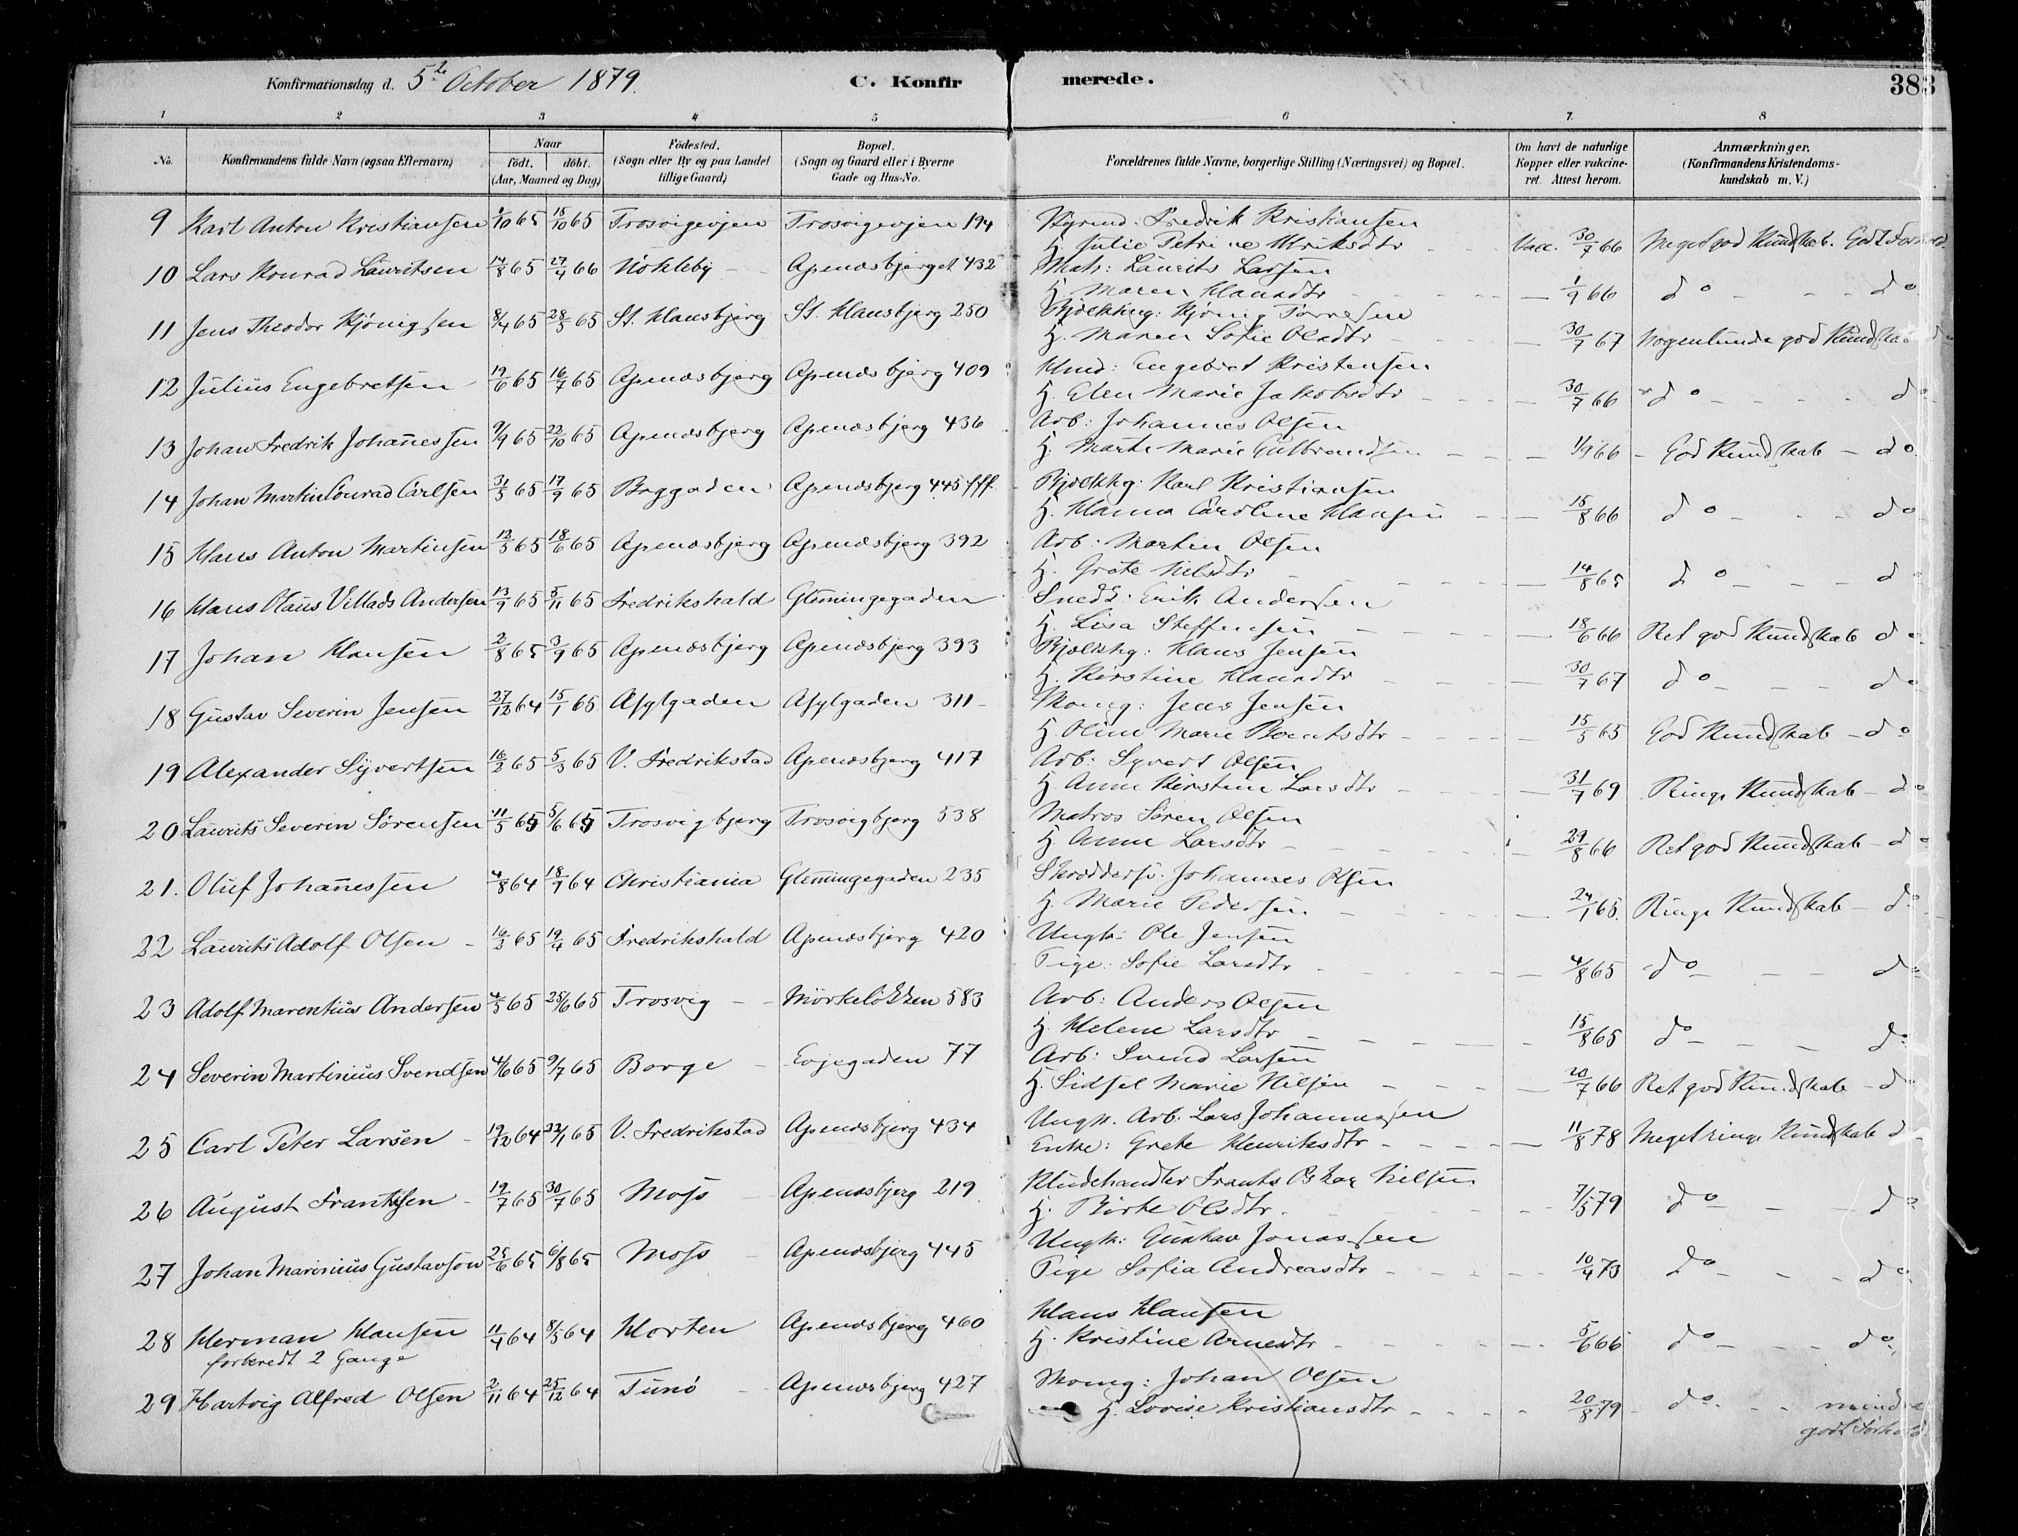 Konfirmationsdag d. 5te October 1879. C. Konfirmerede. 383
1 2 3 4 5 6 7. 8
No. Konfirmandens fulde Navn (ogsaa Efternavn) Naar födt. döbt. (Aar, Maaned og Dag) Födested. (Sogn eller By og paa Landet tillige Gaard) Bopæl. (Sogn og Gaard eller i Byerne Gade og Hus-No. Forældrenes fulde Navne, borgerlige Stilling (Næringsvei) og Bopæl. Om havt de naturlige Kopper eller vakcineret. Attest herom. Anmærkninger. (Konfirmandens Kristendomskundskab m. V.)
9 Karl Anton Kristiansen 1/10 65 15/10 65 Trosvigevjen Trosvigevjen 194 Fredrik Kristiansen
H. Julie Petrine Ulriksdtr Vacc. 30/7 66 Meget god Kundskab. Godt Forhold
10 Lars Konrad Lauritsen 14/8 65 27/4 66 Nökleby Apenæsbjerget 432 Matr: Laurits Larsen
H. Maren Hansdtr 1/9 66 do do
11 Jens Theodor Hjönigsen 8/4 65 28/5 65 St. Hansbjerg St. Hansbjerg 250 Bjælkhg: Hjönig Torresen
H. Maren Sofie Olsdtr 30/7 67 Nogenlunde god Kundskab do
12 Julius Engebretsen 19/6 65 16/7 65 Apenæsbjerg Apenæsbjerg 409 Engebret Kristensen
H. Elen Marie Jakobsdtr 30/7 66 do do
13 Johan Fredrik Johannessen 9/9 65 22/10 65 Apenæsbjerg Apenæsbjerg 436 Arb: Johannes Olsen
H. Marte Marie Gulbrandsen 1/9 66 God Kundskab do
14 Johan Martin Conrad Carlsen 31/5 65 17/9 65 Byggaden Apenæsbjerg 445 fff. Bjælkhg: Karl Kristiansen
H. Hanna Caroline Hansen 15/8 66 do do
15 Hans Anton Martinsen 12/5 65 18/6 65 Apenæsbjerg Apenæsbjerg 392 Arb: Martin Olsen
H. Grete Nilsdtr 14/8 65 do do
16 Hans Olaus Villads Andersen 13/9 65 5/11 65 Fredrikshald Glemingegaden Snedk: Erik Andersen
H. Lisa Steffensen 18/6 66 Ret god Kundskab do
17 Johan Hansen 2/8 65 3/9 65 Apenæsbjerg Apenæsbjerg 393 Bjælkhg: Hans Jensen
H. Kirstine Hansdtr 30/7 67 do do
18 Gustav Severin Jensen 27/12 64 15/1 65 Asylgaden Asylgaden 311 Jens Jensen
H. Oline Marie Berntsdtr 15/5 65 God Kundskab do
19 Alexander Syvertsen 16/2 65 5/3 65 V. Fredrikstad Apenæsbjerg 417 Arb: Syvert Olsen
H. Anne Kirstine Larsdtr 31/7 69 Ringe Kundskab do
20 Laurits Severin Sörensen 11/5 65 5/6 65 Trosvigbjerg Trosvigbjerg 538 Matros Sören Olsen
H. Anne Larsdtr 29/8 66 Ret god Kundskab do
21. Oluf Johannessen 4/8 64 18/9 64 Christiania Glemmingegaden 235 Johannes Olsen
H. Marie Pedersen 24/1 65. Ringe Kundskab do
22 Laurits Adolf Olsen 16/3 65 19/4 65 Fredrikshald Apenæsbjerg 420 Ungk: Ole Jensen
Pige: Sofie Larsdtr 4/8 65 do do
23 Adolf Marentius Andersen 4/5 65 25/6 65 Trosvig Mörkelökken 583 Arb: Anders Olsen
H. Helene Larsdtr 15/8 65 do do
24 Severin Martinius Svendsen 4/6 65 9/7 65 Borge Evjegaden 77 Arb: Svend Larsen
H. Sidsel Marie Nilsen 20/7 66 Ret god Kundskab do
25 Carl Peter Larsen 19/12 64 22/1 65 V. Fredrikstad Apenæsbjerg 434 Ungk. Arb. Lars Johannessen
Enke: Grete Henriksdtr 11/8 78 Meget ringe Kundskab do
26 August Frantsen 19/7 65 30/7 65 Moss Apenæsbjerg 219 Kludehandler Frants Oskar Nilsen
H. Birte Olsdtr 7/5 79 do do
27 Johan Marinius Gustavson 25/6 65 6/8 65 Moss Apenæsbjerg 445 Ungk: Gustav Jonassen
Pige Sofia Andreasdtr 10/4 73 do do
28 Herman Hansen 11/4 64 8/5 64 Horten Apenæsbjerg 460 Hans Hansen
forberedt 2 Gange H. Kristine Arnesdtr 5/6 66 do do
29 Hartvig Alfred Olsen 2/11 64 25/12 64 Tunö Apenæsbjerg 427 Johan Olsen
H. Lovise Kristiansdtr 20/8 79 do mindre
godt Forhold